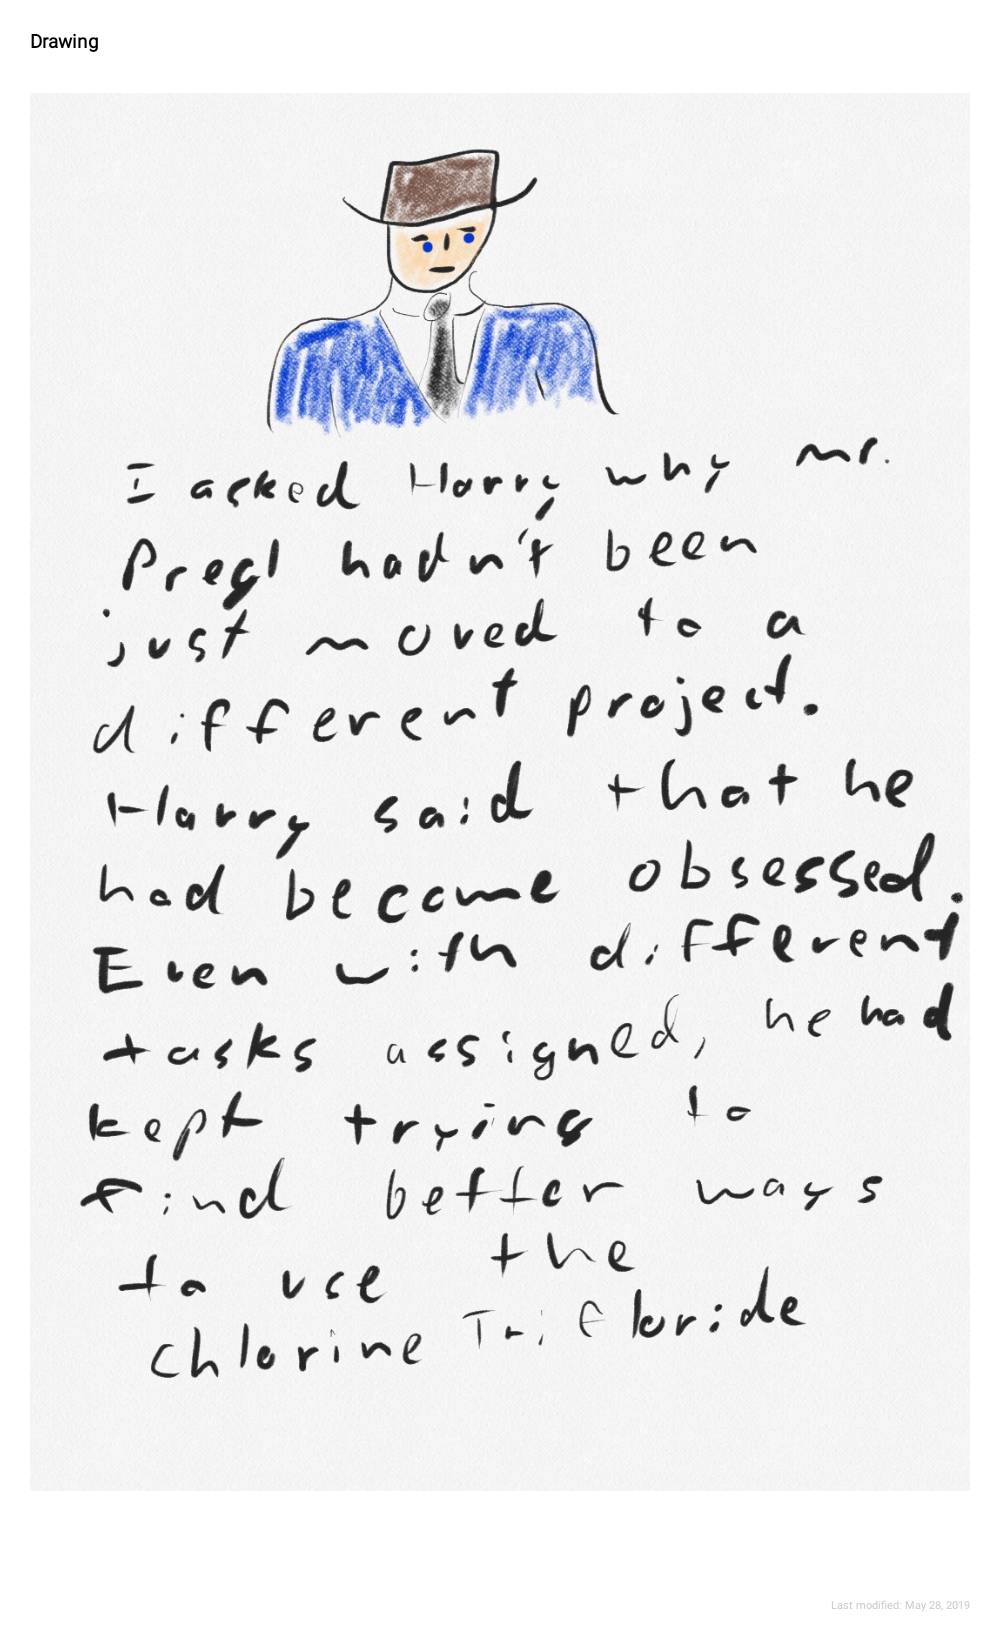 Drawing
I asked Harry why Mr.
Pregl hadn't been
just moved to a
different project.
Harry said that he
had become obsessed.
Even with different
tasks assigned, he had
kept trying to
find better ways
to use the
chlorine Trifloride
Last modified: May 28, 2019